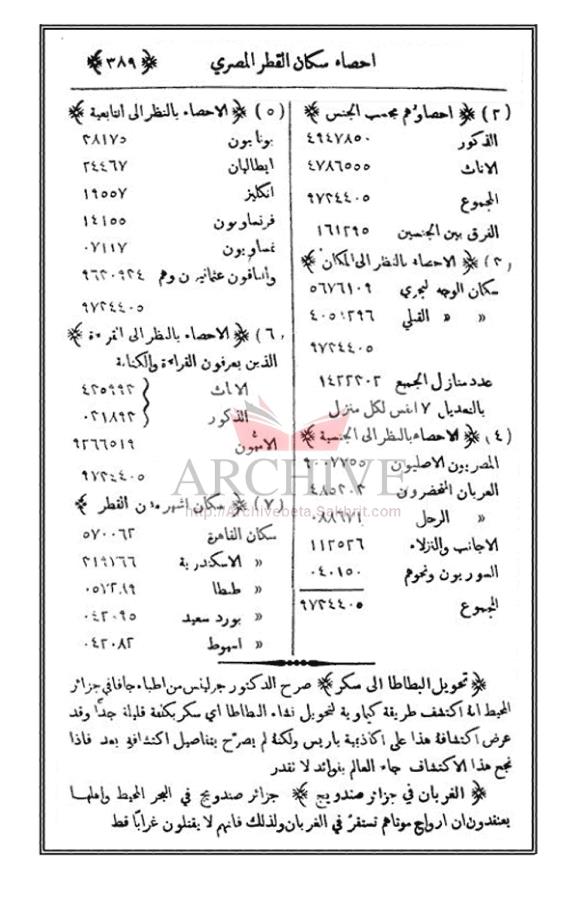 احصاء سكان القطر المصري ﴿٣٨٩﴾
(٢) ﴿ احصاؤهم بحسب الجنس ﴾
الذكور ٤٩٤٧٨٥٠
الاناث ٤٧٨٦٥٥٥
المجموع ٩٧٣٤٤٠٥
الفرق بين الجنسين ١٦١٢٩٥
﴿ الاحصاء بالنظر الى المكان ﴾
سكان الوجه البحري ٥٦٧٦١٠٩
« « القبلي
٩٧٣٤٤٠٥
عدد منازل الجميع ١٤٢٢٣٠٢
بالتعديل ٧ انفس لكل منزل
(٤) ﴿ الاحصاء بالنظر الى الجنسية ﴾
المصريون الاصليون ٩٠٠٧٧٥٥
العربان المتحضرون ٤٨٥٢٠٣
« الرحل ٠٨٨٦٧١
الاجانب والنزلاء ١١٢٥٢٦
السوريون ونحوهم
المجموع ٩٧٣٤٤٠٥
(٥) ﴿ الاحصاء بالنظر الى التابعية ﴾
يونانيون ٣٨١٧٥
ايطاليان ٢٤٤٦٧
انكليز ١٩٥٥٧
فرنساويون ١٤١٥٥
نمساويون ٠٧١١٧
والباقون عثمانيون وهم
٩٧٣٤٤٠٥
(٦) ﴿ الاحصاء بالنظر الى القراءة ﴾
الذين يعرفون القراءة والكتابة
الاناث ٤٣٥٩٩٣
الذكور ٠٣١٨٩٣
الاميون ٩٢٦٦٥١٩
٩٧٣٤٤٠٥
(٧) ﴿ سكان اشهر مدن القطر ﴾
سكان القاهرة ٥٧٠٠٦٢
« الاسكندرية ٣١٩١٦٦
« طنطا
« بورد سعيد ٠٤٢٠٩٥
« اسيوط ٠٤٢٠٨٢
ARCHIVE
http://Archivebeta.Sakhrit.com
﴿ تحويل البطاطا الى سكر ﴾ صرح الدكتور من اطباء جافا في جزائر
المحيط انه اكتشف طريقة كيماوية لتحويل نشاء البطاطا اي سكر بكلفة قليلة جدًّا وقد
عرض اكتشافة هذا على اكاذيمية باريس ولكنة لم يصرّح بتفاصيل اكتشافه بعد فاذا
نجح هذا الاكتشاف جاء العالم بفوائد لا تقدر
﴿ الغربان في جزائر صندويج ﴾ جزائر صندويج في البحر المحيط واهلها
يعتقدون ان ارواح موتاهم تستقرّ في الغربان ولذلك فانهم لا يقتلون غرابًا قط